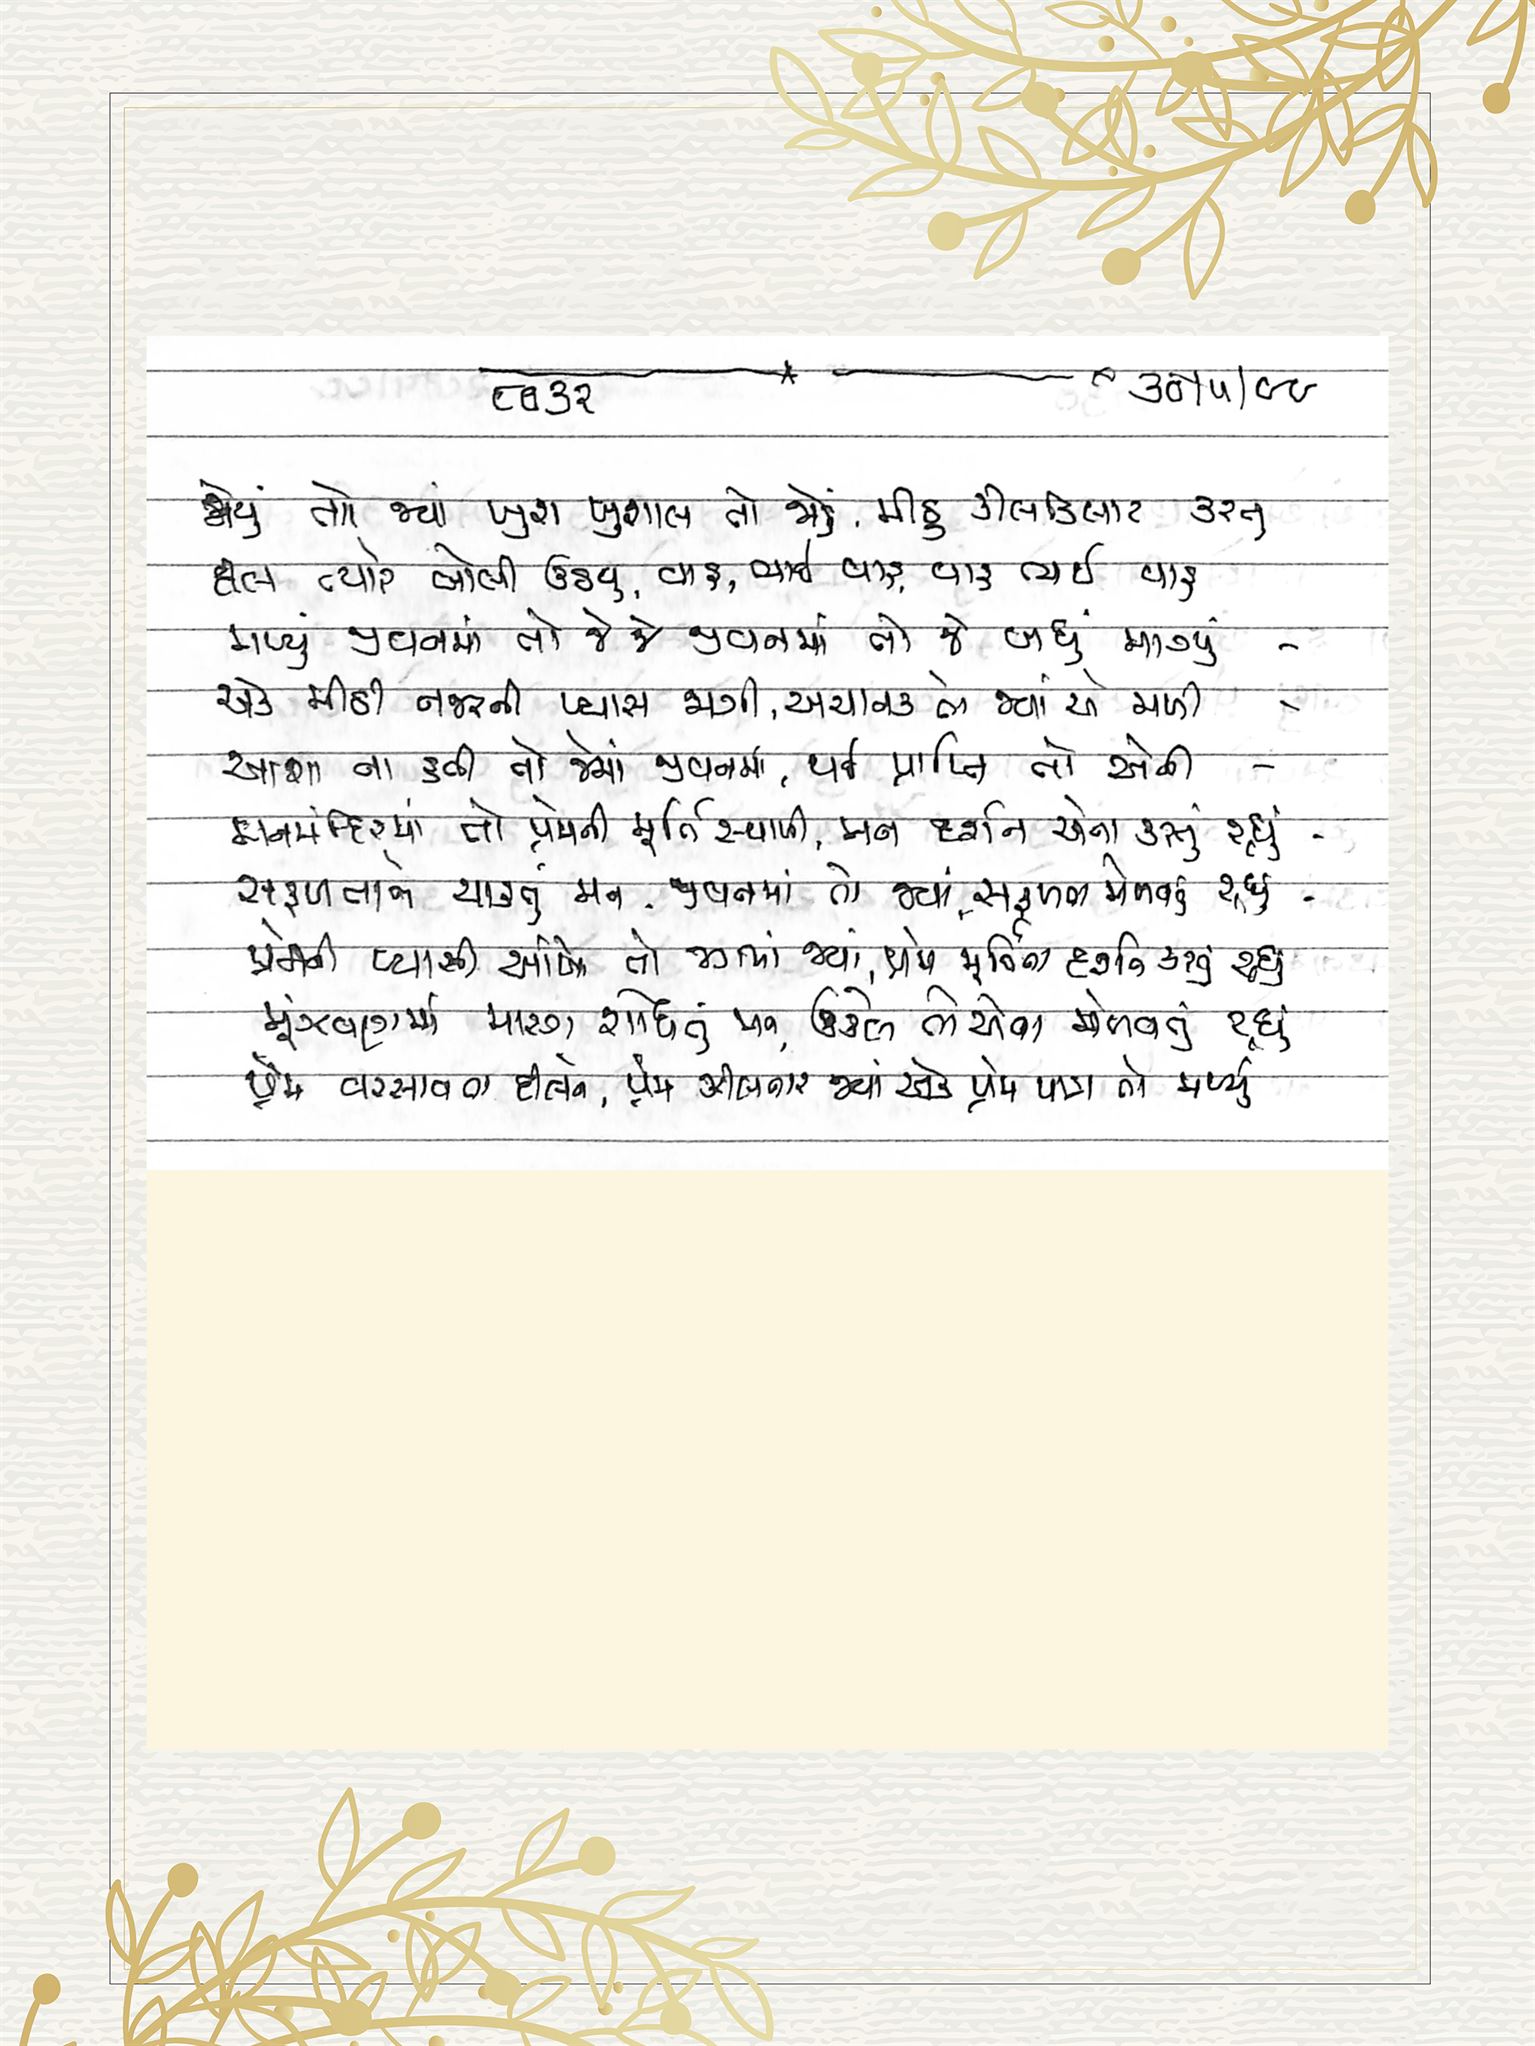 ૮૭૩૨ ૩૦/૫/૯૯
જોયું તો જ્યાં ખુશ ખુશાલ તો જોડું, મીઠું કીલકિલાટ કરતુ
દીલ ત્યારે બોલી ઉઠયુ, વાહ, ભાઈ વાહ, વાહ ભાઈ વાહ
મળ્યું જીવનમાં તો જે જે જીવનમાં તો જે બધું માગ્યું -
એક મીઠી નજરની પ્યાસ જાગી, અચાનક તે જ્યાં એ મળી -
આશા ના હતી તો જેમાં જીવનમાં, થઈ પ્રાપ્તિ તો એની -
મનમંદિરમાં તો પ્રેમની મૂર્તિ સ્થાપી, મન દર્શન એના કરતું રહ્યું -
સફળતાને ચાહતું મન, જીવનમાં તો જ્યાં, સફળતા મેળવતું રહ્યું -
પ્રેમની પ્યાસી આંખો તો જ્યાં, પ્રેમ મૂર્તિના દર્શન કરતું રહ્યું
મૂંઝવણમાં મારગ શોધતું મન, ઉકેલ તો એના મેળવતું રહ્યું
પ્રેમ વરસાવતા દીલને, પ્રેમ ઝીલનાર જ્યાં એક પ્રેમ પાત્ર તો મળ્યું